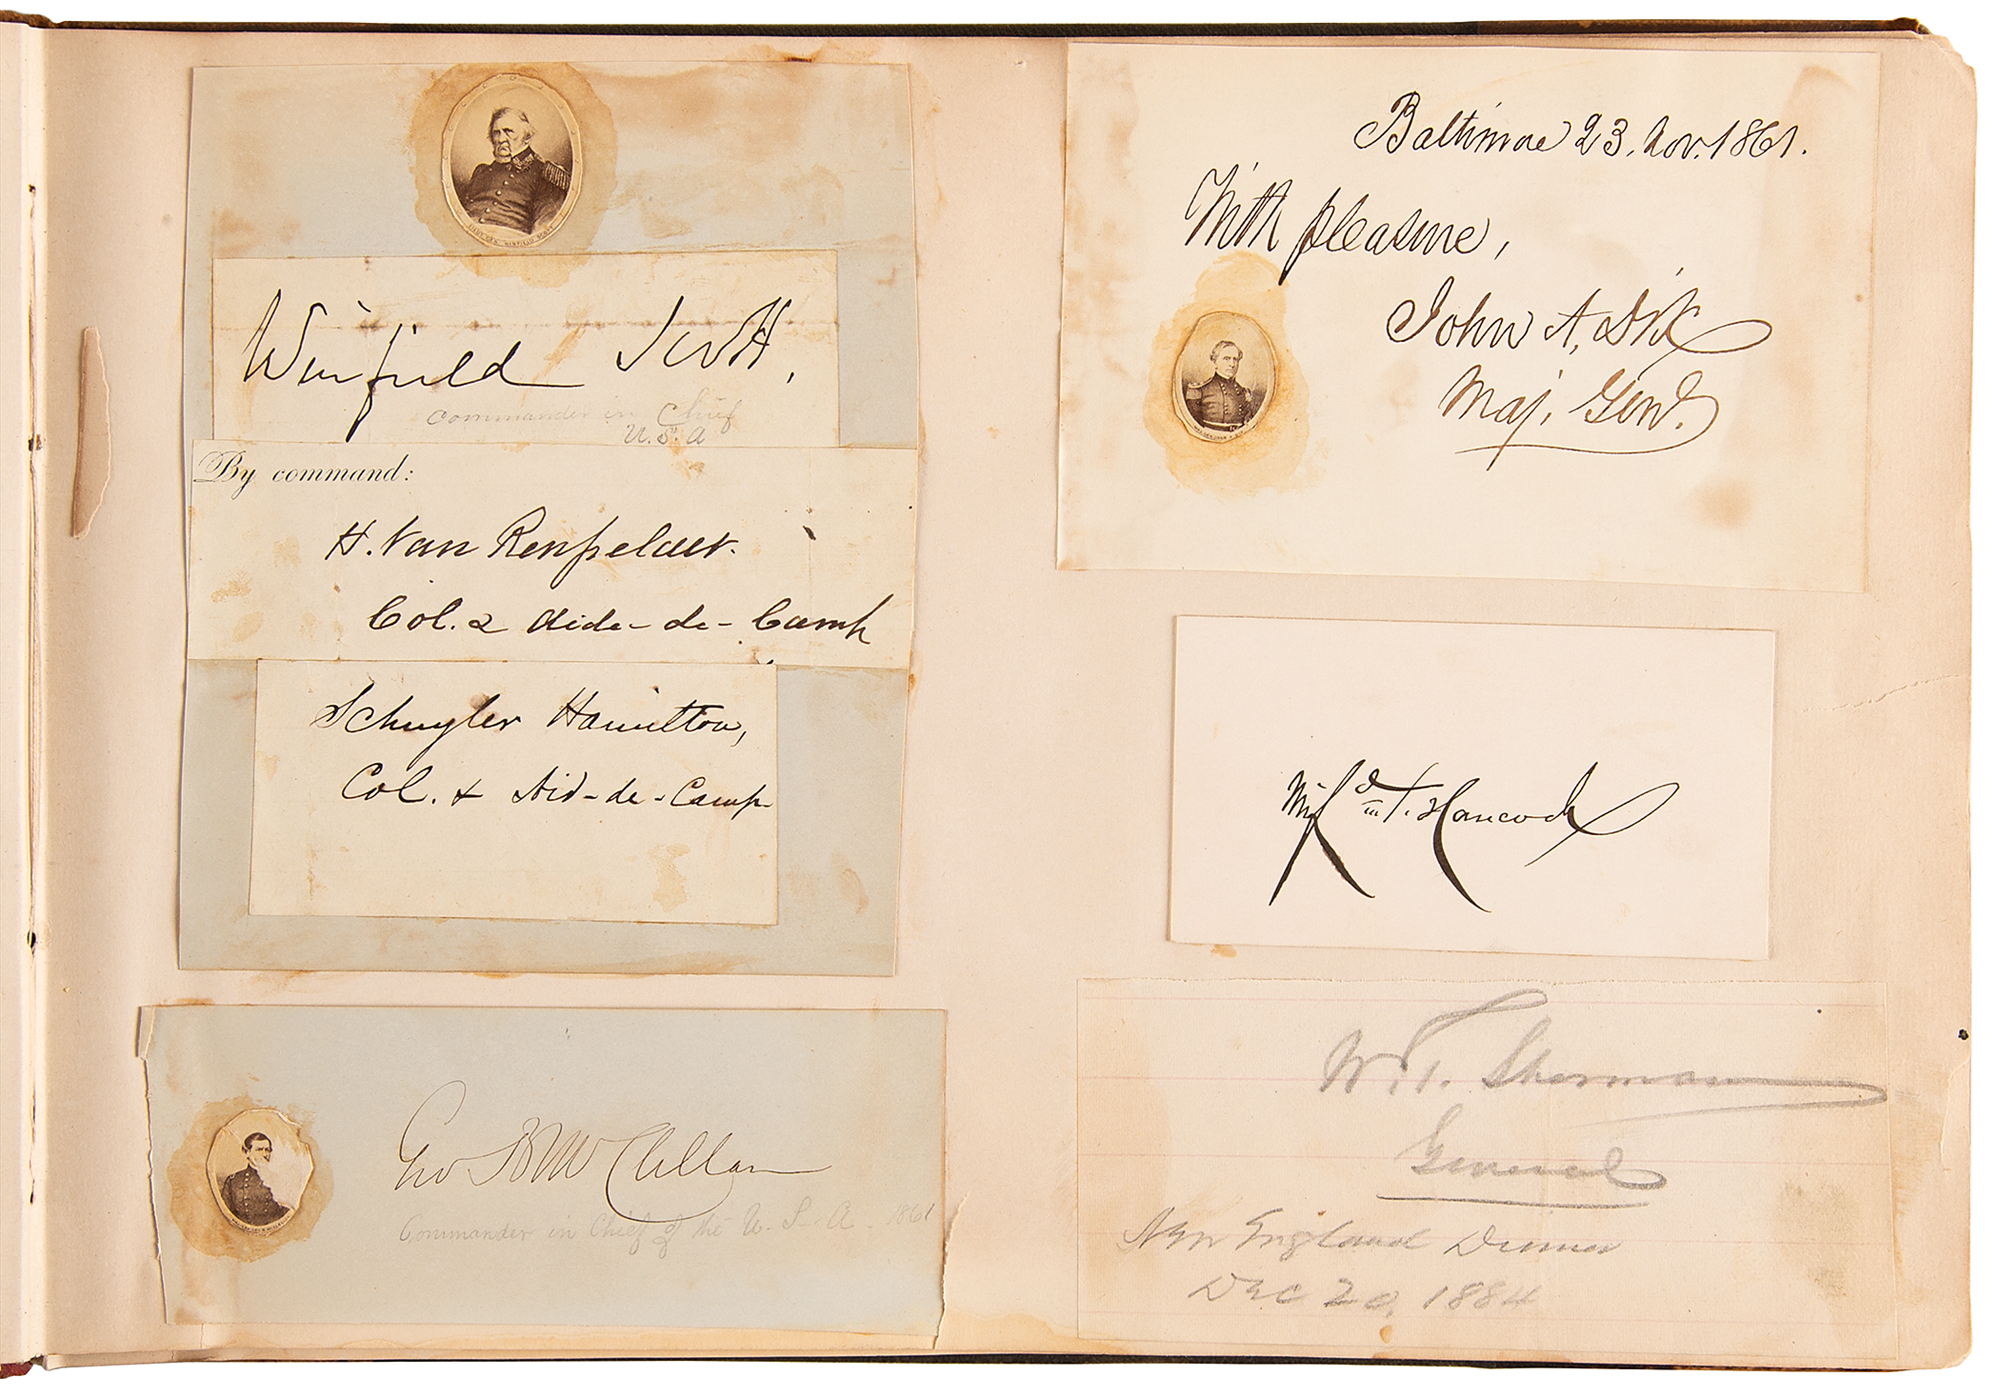 LIEUT. GEN. WINFIELD SCOTT
Winfield Scott,
Commander in Chief
U.S.A
By command:
H. Van Rensselaer.
Col. & Aide-de-Camp
Schuyler Hamilton,
Col. & Aid-de-Camp
Geo B McClellan
Commander in Chief of the U. S. A. 1861
Baltimore 23. Nov. 1861.
With pleasure,
John A. Dix
Maj. Genl.
Winfd S. Hancock
W. T. Sherman
General
New England Dinner
Dec 20, 1884